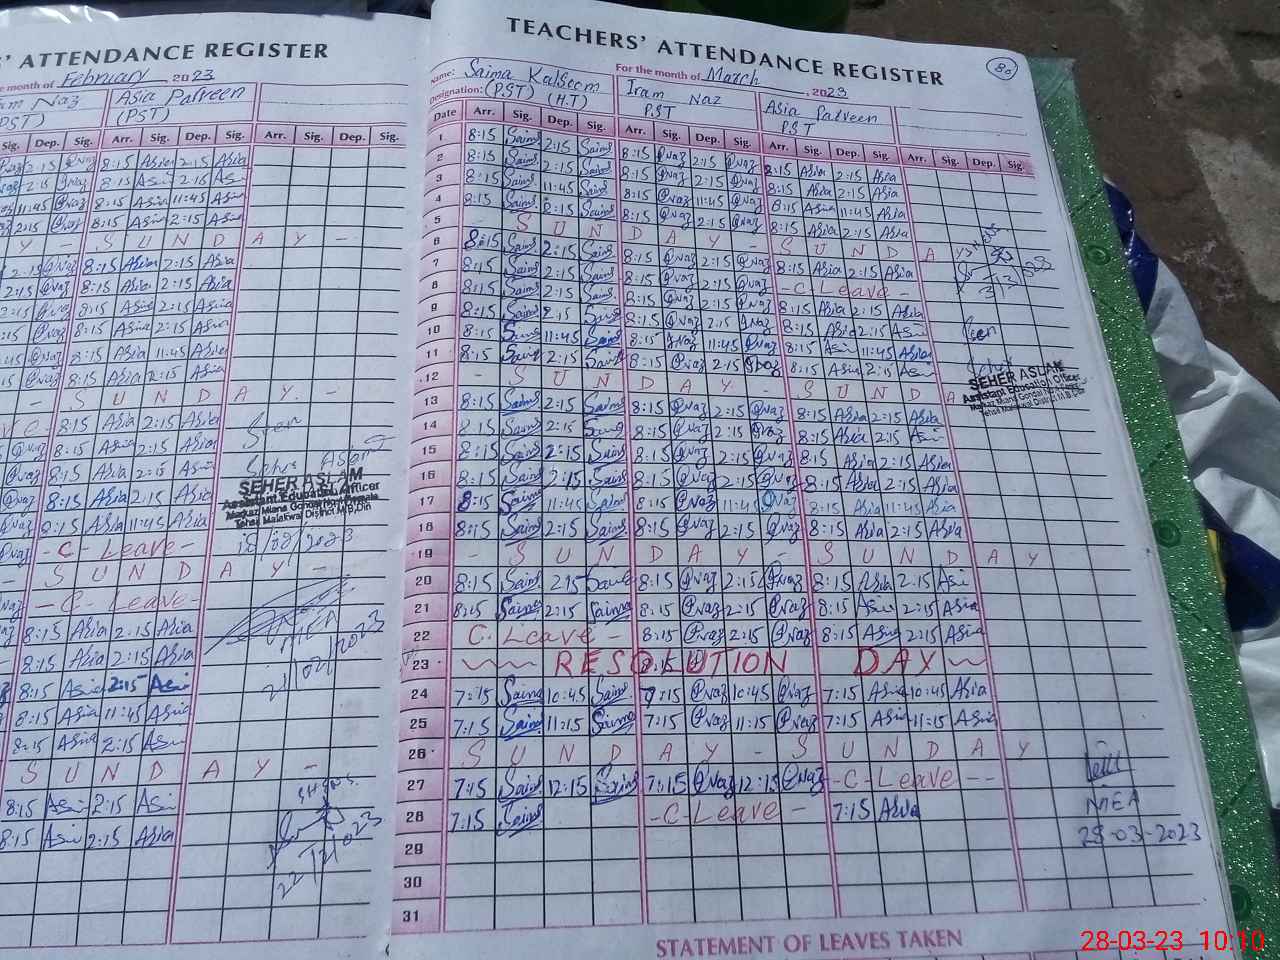 S' ATTENDANCE REGISTER
e month of February 2023
am Naz Asia Parveen
PST) (PST)
Sig. Dep. Sig. Arr. Sig. Dep. Sig. Arr. Sig. Dep. Sig.
8:15 Asia 2:15 Asia
8:15 Asia 11:45 Asia
8:15 Asia 2:15 Asia
A Y - S U N D A Y -
8:15 Asia 2:15 Asia
8:15 Asia 2:15 Asia
8:15 Asia 2:15 Asia
8:15 Asia 2:15 Asia
8:15 Asia 11:45 Asia
8:15 Asia 2:15 Asia
- S U N D A Y -
8:15 Asia 2:15 Asia
8:15 Asia 2:15 Asia
8:15 Asia 2:15 Asia
8:15 Asia 2:15 Asia
8:15 Asia 11:45 Asia
- C - Leave -
- S U N D A Y -
- C - Leave -
8:15 Asia 2:15 Asia
8:15 Asia 2:15 Asia
8:15 Asia 2:15 Asia
8:15 Asia 11:45 Asia
8:15 Asia 2:15 Asia
S U N D A Y -
8:15 Asia 2:15 Asia
8:15 Asia 2:15 Asia
SEHER ASLAM
Assistant Education Officer
Tehsil Malakwal District M.B.Din
18/02/2023
MEA
21/02/2023
TEACHERS' ATTENDANCE REGISTER
80
Name: Saima Kalsoom For the month of March, 2023
Designation: (PST) (H.T) Iram Naz PST Asia Parveen PST
Date Arr. Sig. Dep. Sig. Arr. Sig. Dep. Sig. Arr. Sig. Dep. Sig. Arr. Sig. Dep. Sig.
1 8:15 Saima 2:15 Saima 8:15 Naz 2:15 Naz 8:15 Asia 2:15 Asia
2 8:15 Saima 2:15 Saima 8:15 Naz 2:15 Naz 8:15 Asia 2:15 Asia
3 8:15 Saima 11:45 Saima 8:15 Naz 11:45 Naz 8:15 Asia 11:45 Asia
4 8:15 Saima 2:15 Saima 8:15 Naz 2:15 Naz 8:15 Asia 2:15 Asia
5 - S U N D A Y - S U N D A Y
6 8:15 Saima 2:15 Saima 8:15 Naz 2:15 Naz 8:15 Asia 2:15 Asia
7 8:15 Saima 2:15 Saima 8:15 Naz 2:15 Naz - C Leave -
8 8:15 Saima 2:15 Saima 8:15 Naz 2:15 Naz 8:15 Asia 2:15 Asia
9 8:15 Saima 2:15 Saima 8:15 Naz 2:15 Naz 8:15 Asia 2:15 Asia
10 8:15 Saima 11:45 Saima 8:15 Naz 11:45 Naz 8:15 Asia 11:45 Asia
11 8:15 Saima 2:15 Saima 8:15 Naz 2:15 Naz 8:15 Asia 2:15 Asia
12 - S U N D A Y - S U N D A
13 8:15 Saima 2:15 Saima 8:15 Naz 2:15 Naz 8:15 Asia 2:15 Asia
14 8:15 Saima 2:15 Saima 8:15 Naz 2:15 Naz 8:15 Asia 2:15 Asia
15 8:15 Saima 2:15 Saima 8:15 Naz 2:15 Naz 8:15 Asia 2:15 Asia
16 8:15 Saima 2:15 Saima 8:15 Naz 2:15 Naz 8:15 Asia 2:15 Asia
17 8:15 Saima 11:45 Saima 8:15 Naz 11:45 Naz 8:15 Asia 11:45 Asia
18 8:15 Saima 2:15 Saima 8:15 Naz 2:15 Naz 8:15 Asia 2:15 Asia
19 - S U N D A Y - S U N D A Y
20 8:15 Saima 2:15 Saima 8:15 Naz 2:15 Naz 8:15 Asia 2:15 Asia
21 8:15 Saima 2:15 Saima 8:15 Naz 2:15 Naz 8:15 Asia 2:15 Asia
22 C. Leave - 8:15 Naz 2:15 Naz 8:15 Asia 2:15 Asia
23 RESOLUTION DAY
24 7:15 Saima 10:45 Saima 7:15 Naz 10:45 Naz 7:15 Asia 10:45 Asia
25 7:15 Saima 11:15 Saima 7:15 Naz 11:15 Naz 7:15 Asia 11:15 Asia
26 S U N D A Y - S U N D A Y
27 7:15 Saima 12:15 Saima 7:15 Naz 12:15 Naz - C - Leave - -
28 7:15 Saima - C - Leave - 7:15 Asia
29
30
31
SEHER ASLAM
Assistant Education Officer
Tehsil Malakwal District M.B.Din
MEA
28-03-2023
STATEMENT OF LEAVES TAKEN
28-03-23 10:10